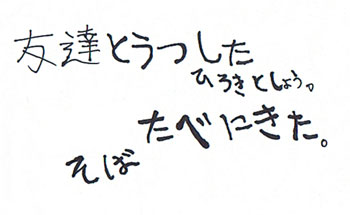 友達とうつした
ひろきとしょう。
たべにきた。
そば